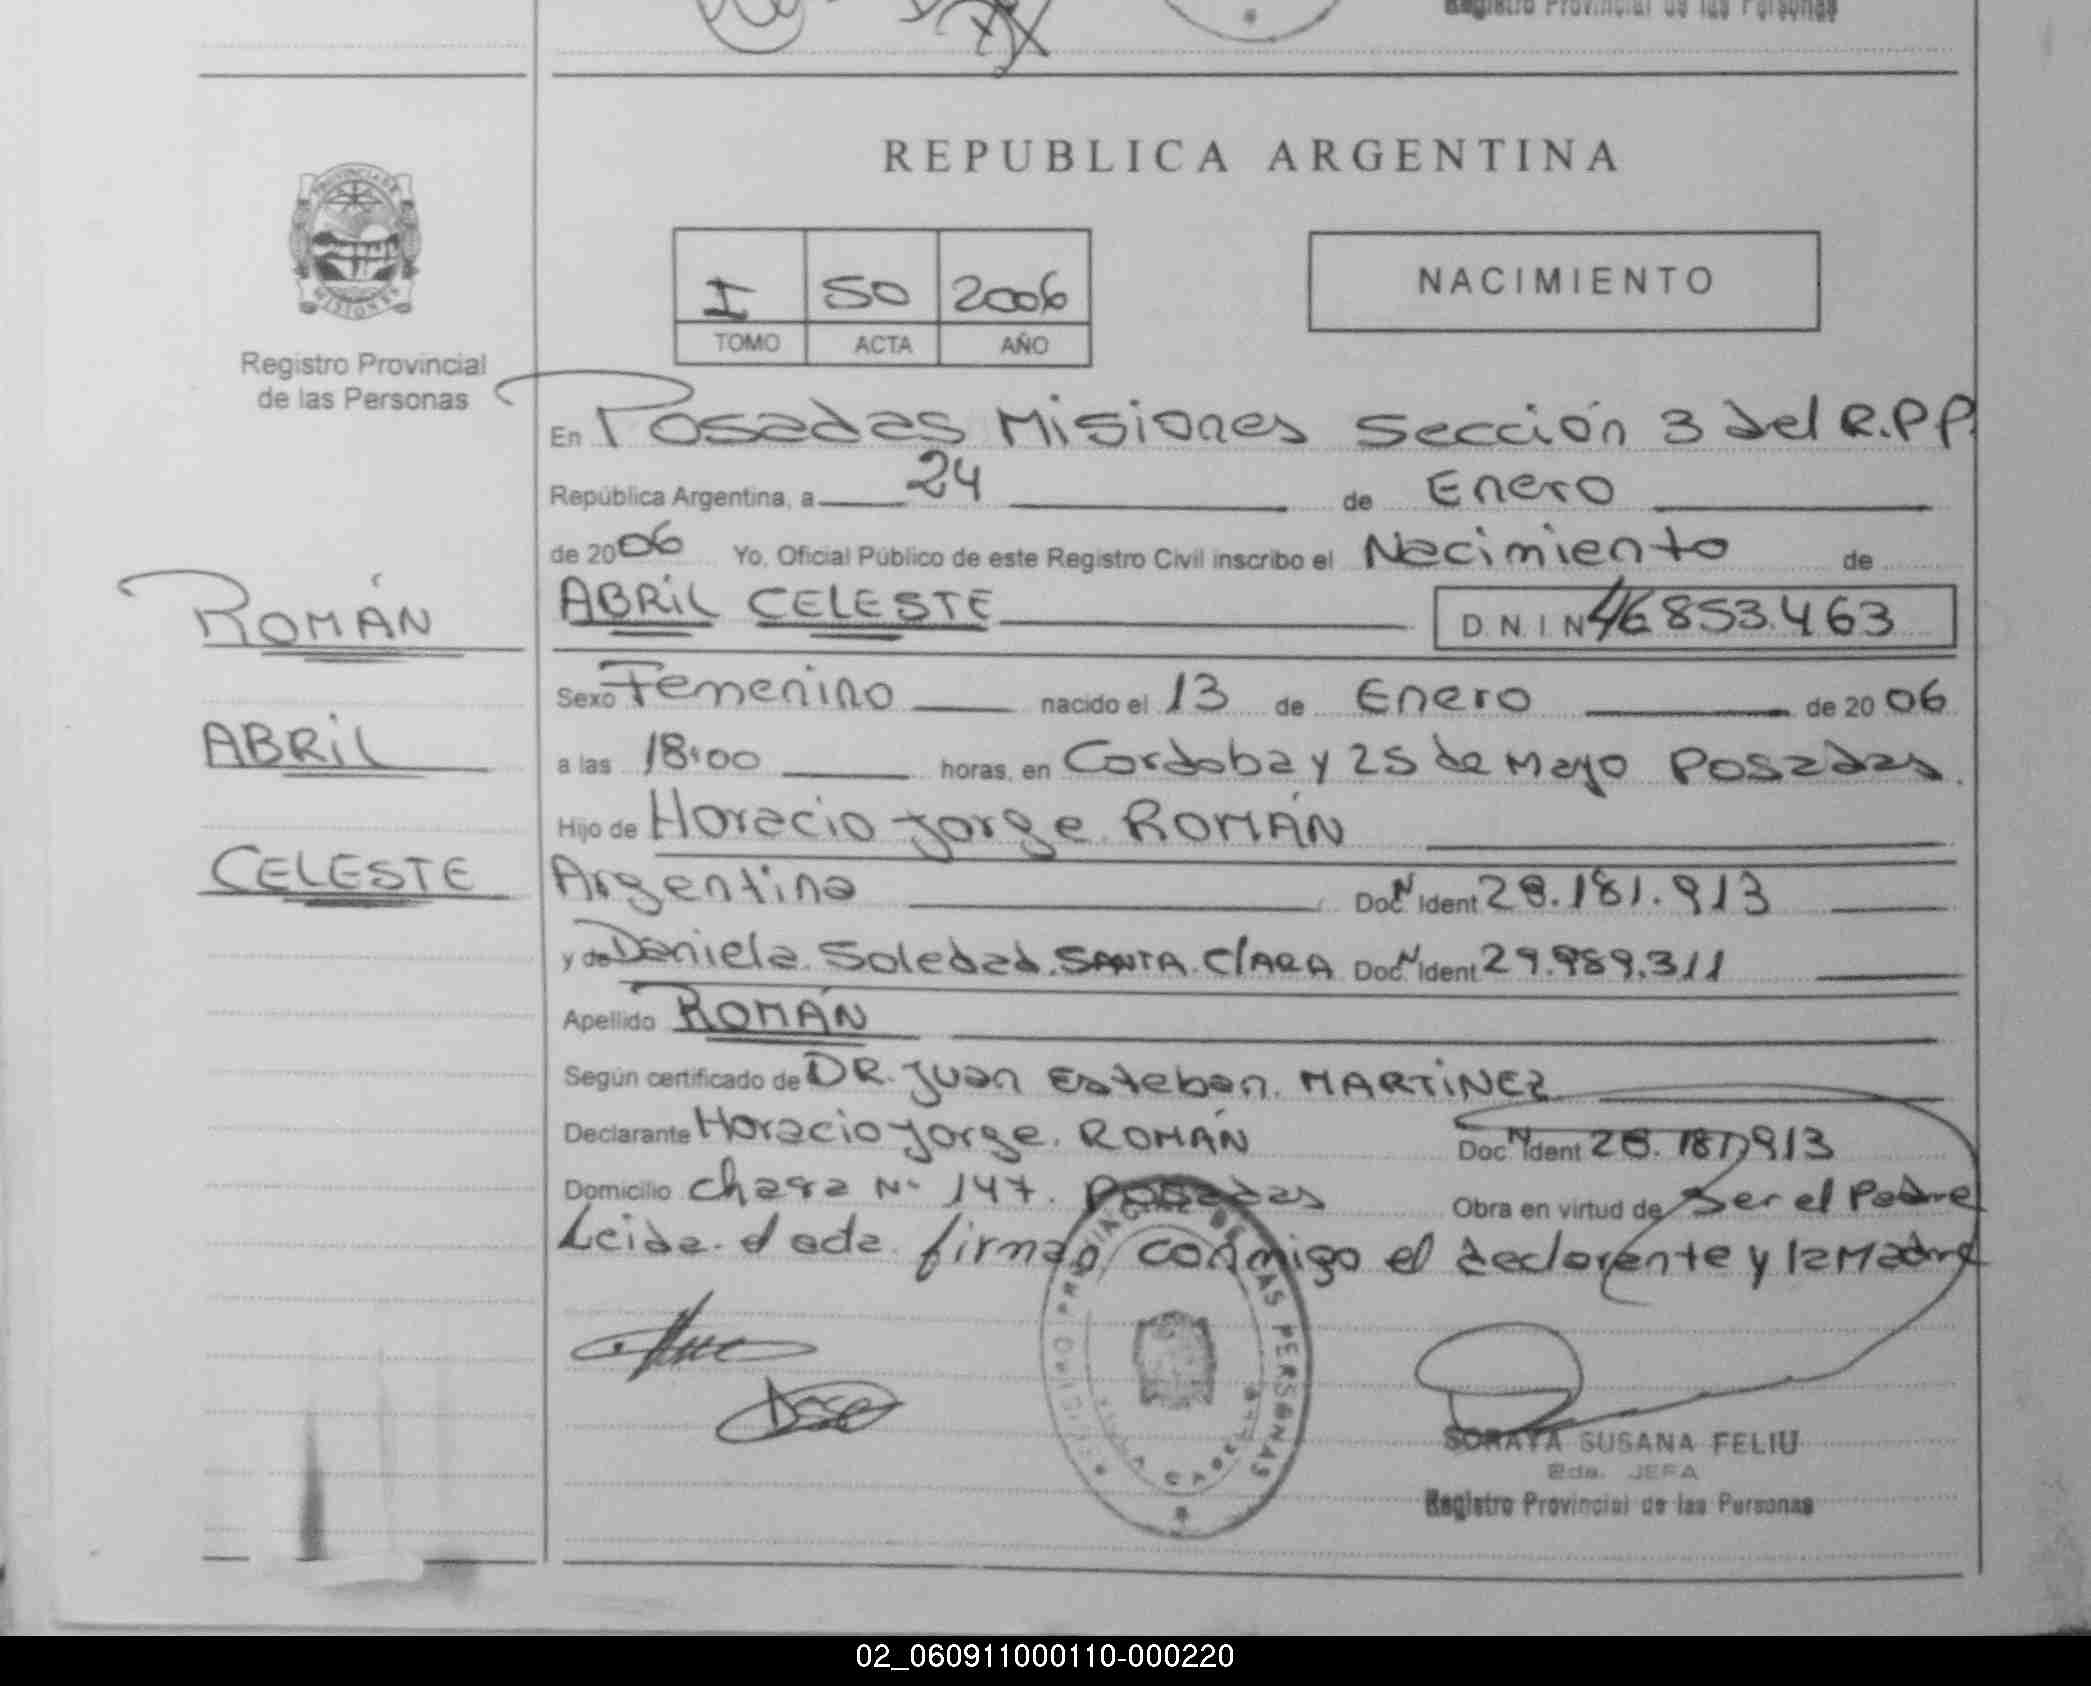 Registro Provincial de las Personas
REPUBLICA ARGENTINA
PROVINCIA DE
MISIONES
Registro Provincial
de las Personas
I 50 2006
TOMO ACTA AÑO
NACIMIENTO
En Posadas Misiones Sección 3 del R.P.P.
República Argentina, a 24 de Enero
de 2006 Yo, Oficial Público de este Registro Civil inscribo el Nacimiento de
ROMÁN
ABRIL CELESTE D.N.I Nº 46853.463
Sexo Femenino nacido el 13 de Enero de 2006
ABRIL
a las 18:00 horas, en Cordoba y 25 de Mayo Posadas.
Hijo de Horacio Jorge ROMÁN
CELESTE
Argentino Doc. N Ident 28.181.913
y de Daniela Soledad SANTA ClARA Doc. N Ident 29.989.311
Apellido ROMÁN
Según certificado de DR. Juan Esteban MARTINEZ
Declarante Horacio Jorge ROMÁN Doc. N Ident 28.181.913
Domicilio chacra Nº 147. Posadas Obra en virtud de Ser el Padre
Leida el acta firman conmigo el declarante y la Madre
REGISTRO PROVINCIAL DE LAS PERSONAS
SORAYA SUSANA FELIU
2da. JEFA
Registro Provincial de las Personas
02_060911000110-000220